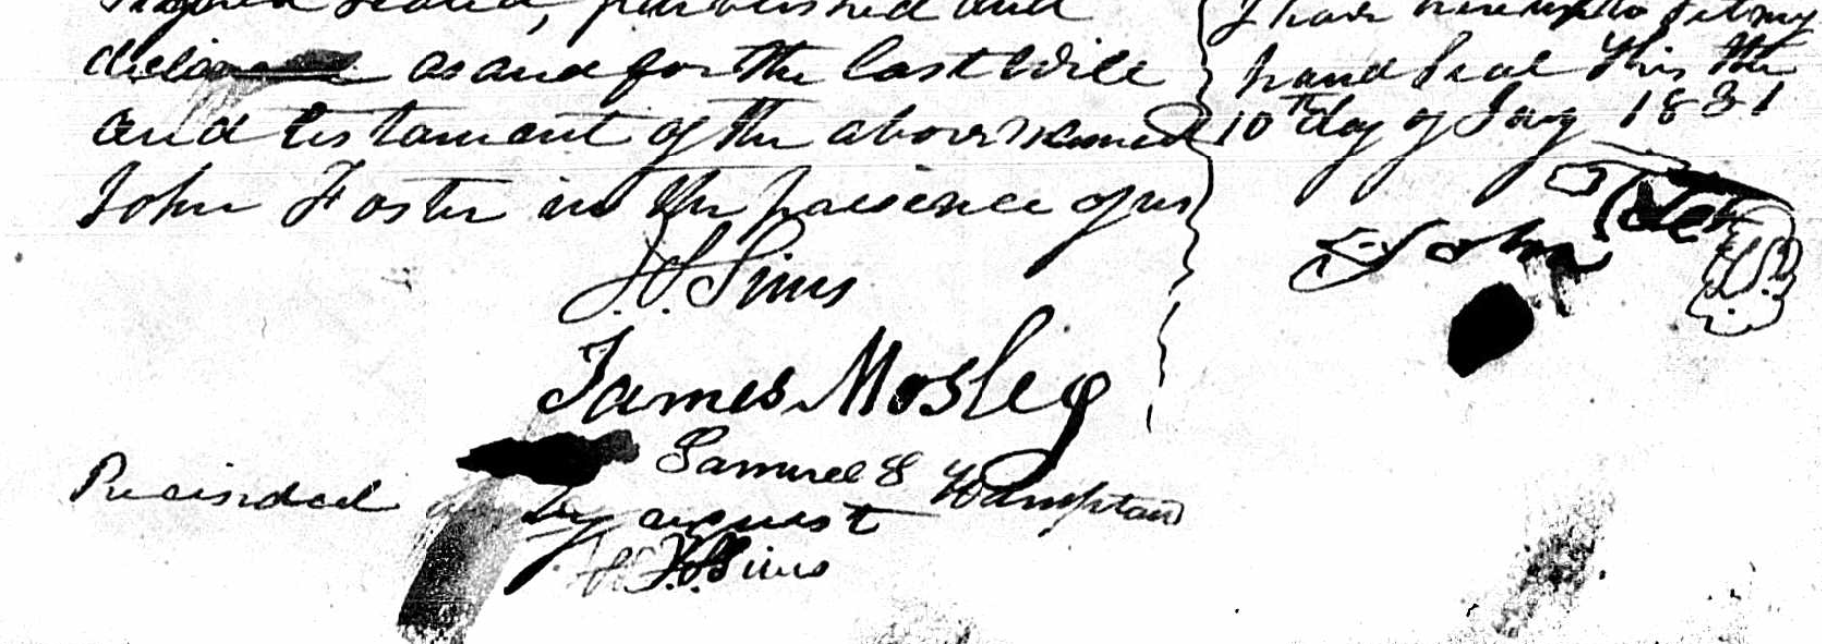 Signed sealed, published and
as and for the last Will
and testament of the above named
John Foster in the presence of us
J. S. Sims
James Mosley
Samuel S Hampton
by request
J. S. Sims
Recinded
I have hereunto set my
hand seal this the
10th day of Jany 1881
John